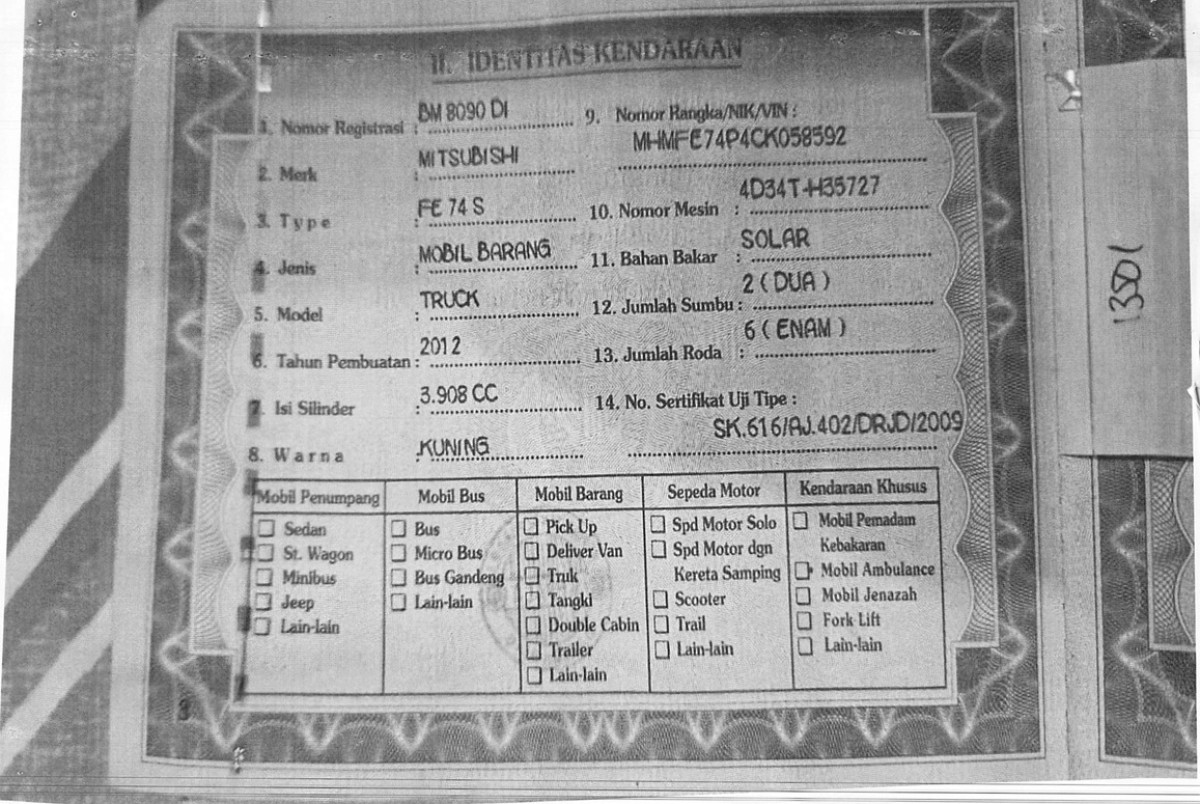 II. IDENTITAS KENDARAAN
1. Nomor Registrasi : BM 8090 DI
2. Merk : MITSUBISHI
3. Type : FE 74 S
4. Jenis : MOBIL BARANG
5. Model : TRUCK
6. Tahun Pembuatan : 2012
7. Isi Silinder : 3.908 CC
8. Warna : KUNING
9. Nomor Rangka/NIK/VIN :
MHMFE74P4CK058592
10. Nomor Mesin : 4D34T-H35727
11. Bahan Bakar : SOLAR
12. Jumlah Sumbu : 2 ( DUA )
13. Jumlah Roda : 6 ( ENAM )
14. No. Sertifikat Uji Tipe :
SK.616/AJ.402/DRJD/2009
Mobil Penumpang
Sedan
St. Wagon
Minibus
Jeep
Lain-lain
Mobil Bus
Bus
Micro Bus
Bus Gandeng
Lain-lain
Mobil Barang
Pick Up
Deliver Van
Truk
Tangki
Double Cabin
Trailer
Lain-lain
Sepeda Motor
Spd Motor Solo
Spd Motor dgn
Kereta Samping
Scooter
Trail
Lain-lain
Kendaraan Khusus
Mobil Pemadam
Kebakaran
Mobil Ambulance
Mobil Jenazah
Fork Lift
Lain-lain
3